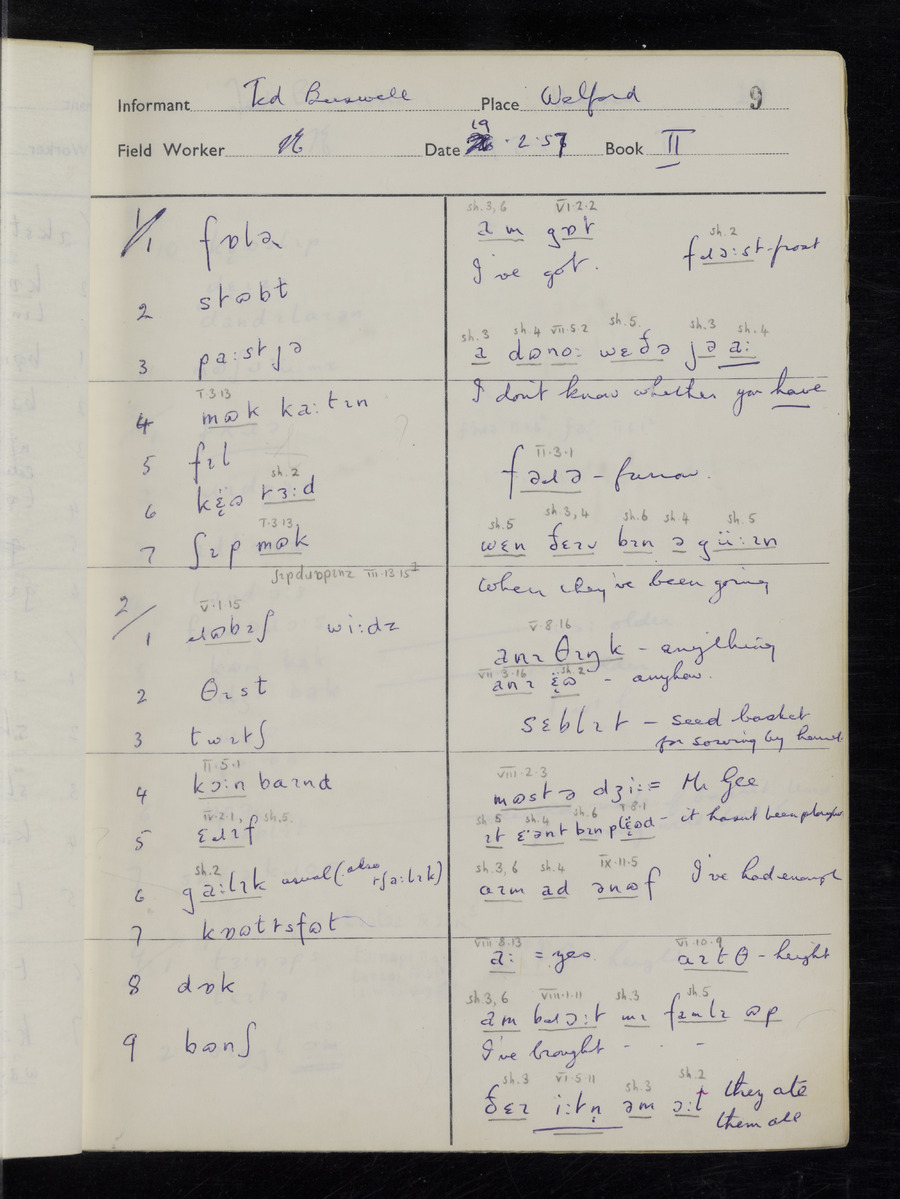 Informant Ted Buswell Place Welford 9
Field Worker Date 19 · 2 · 57 Book II
1/1 fɒlə
2 stɷbt
3 pa:stjə
4 mɷk ka:tɪn
T 3 13
5 fɪl
6 tɜ:d
sh. 2
7 ʃɪp mɷk
T·3 13
III·13·15
2/1 ɹɷbɪʃ wi:dz
V·1·15
2 θɪst
3 twɪtʃ
4 kɔ:n baɪnd
II·5·1
5 ɛɹɪf
IV·2·1, sh.5.
6 ga:lɪk usual (also tʃa:lɪk)
sh. 2
7
8 dɒk
9 bɷnʃ
sh. 3, 6 VI·2·2
a m gɒt
I've got.
sh. 2
fɹɔ:st - frost
sh. 3 sh. 4 VII·5·2 sh. 5. sh. 3 sh. 4
a dɷno: wɛðə jə a:
I don't know whether you have
II·3·1
fəɹə - furrow.
sh. 5 sh. 3, 4 sh. 6 sh. 4 sh. 5
wɛn ðɛɪv bɪn ə gü:ɪn
when they've been going
V·8·16
anɪ θɪŋk - anything
VII·3·16 sh. 2
- anyhow.
sɛblɪt - seed basket
for sowing by hand.
VIII·2·3
mɷstə dʒi: = Mr Gee
sh 5 sh. 4 sh. 6 T·8·1
- it hasn't been ploughed
sh. 3, 6 sh. 4 IX·11·5
aɪm ad ənɷf I've had enough
VIII 8·13 VI·10·9
a: = yes. aɪtθ - height
sh. 3, 6 VIII·1·11 sh. 3 sh. 5
am bɹɔ:t mɪ famlɪ ɷp
I've brought - - -
sh. 3 VI·5·11 sh. 3 sh. 2
ðɛɪ i:tn̩ əm ɔ:t they ate
them all